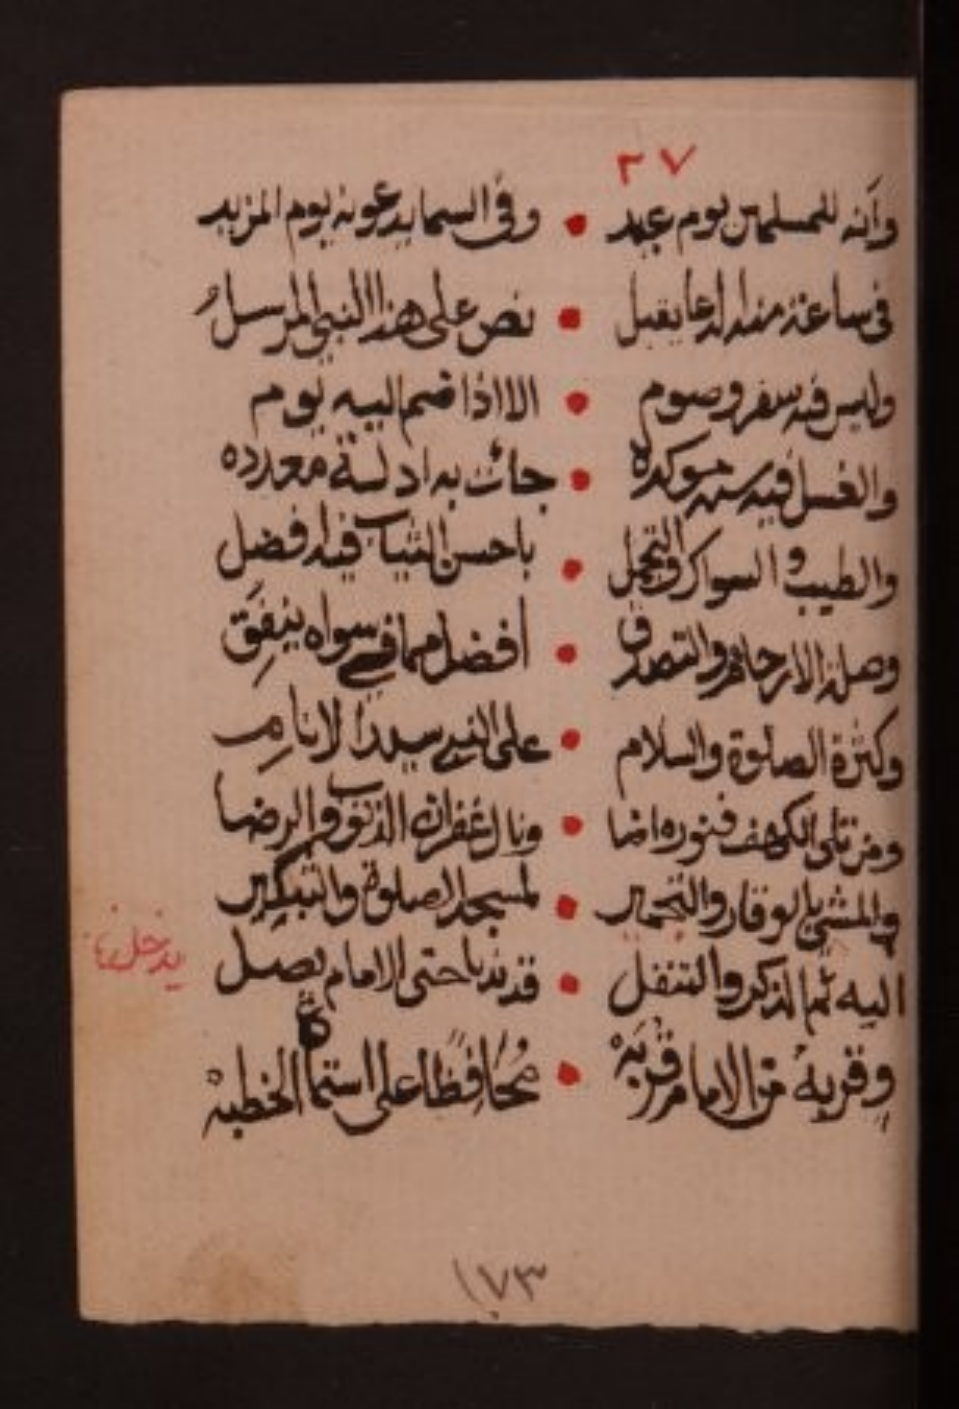 ٢٧
وأنه للمسلمين يوم عيد • وفى السما يدعونه يوم المزيد
فى ساعة منه الدعا يقبل • نص على هذا النبي المرسلُ
وليس فيه سفر وصوم • الا اذا ضم اليه يوم
والغسل فيه سنه موكده • جائت به ادلة معدده
والطيب والسواك والتجمل • باحسن الثياب فيه افضل
وصلة الارحام والتصدق • أفضل مما في سواه ينفق
وكثرة الصلوة والسلام • على النبي سيد الانام
ومن تلى الكهف فنوره اضا • ونال غفران الذنوب والرضا
والمشي بالوقار والتحميد • لمسجد الصلوة والتبكير
اليه ثم الذكر والتنفل • قد ندبا حتى الامام يصل
وقربه من الامام قربَهْ • مُحافظًا على استماع الخطبهْ
١٧٣